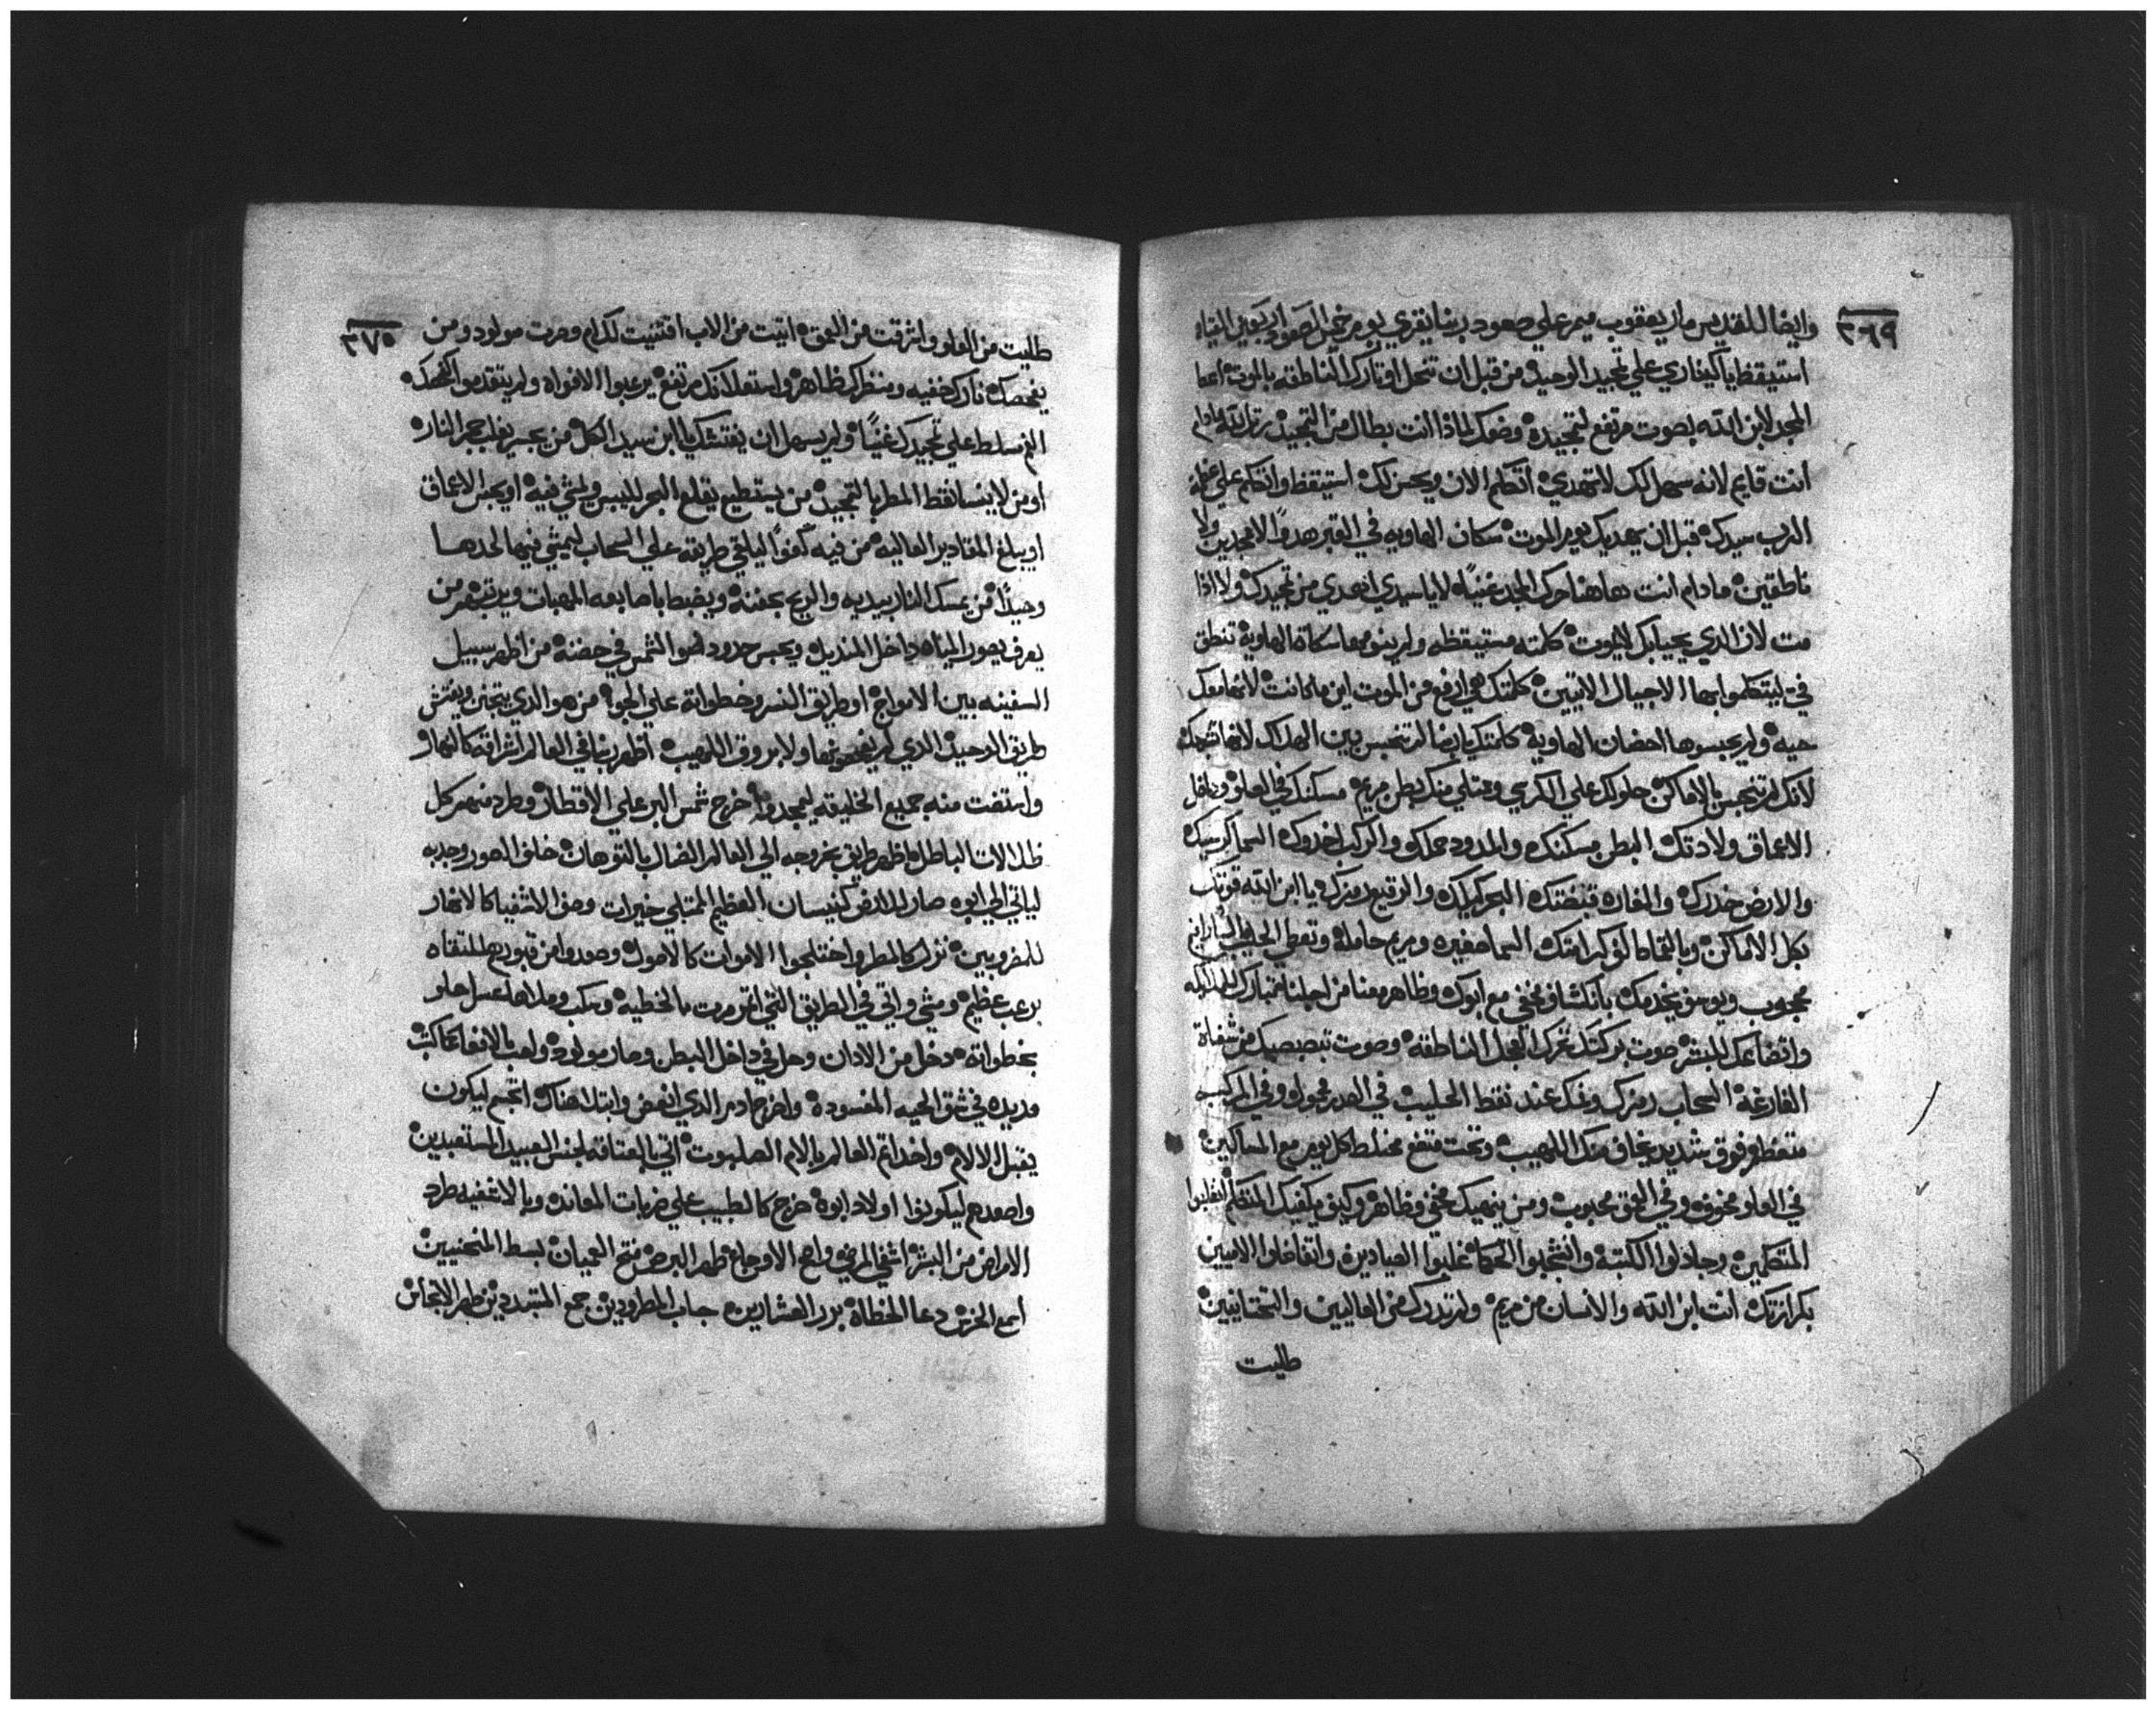 ٣٦٩
وايضا للقديس ماري يعقوب ميمر علي صعود ربنا يقري يوم خميس الصعود اربعين القيامه
استيقظ يا كيناري علي تمجيد الوحيد من قبل ان تنحل اوتارك الناطقه بالموت اعطا
المجد لابن الله بصوت مرتفع لتمجيده وضعك لماذا انت بطال من التمجيد رتل له مادام
انت قايم لانه سهل لك لا تهدي اتكلم الان ويحسن لك استيقظ واتكلم علي عظمة
الرب سيدك قبل ان يهديك يوم الموت سكان الهاويه في القبر هدوا لا ممجدين ولا
ناطقين مادام انت هاهنا حرك المجد غنيا لا يا سيدي اهدي من تمجيدك ولا اذا
مت لان الذي يحيا بك لا يموت كلمته مستيقظه ولم ينوموها سكان الهاوية تنطق
في ليتكلموا بها الاجيال الاتيين كلمتك هي ارفع من الموت اين ما كانت لانها معك
حيه ولم يحبسوها احضان الهاوية كلمتك يا ايضا لم تنحبس بين الهلاك لانها تشبهك
لانك لم تنحبس بالاماكن حلولك علي الكرسي وممتلي منك بطن مريم مسكنك في العلو وداخل
الاعماق ولادتك البطن مسكنك والمدود حملك والمركب اخدوك السما كرسيك
والارض خدرك والمغاره قبضتك البحر كيلك والرقيع رمزك يا ابن الله قوتك
بكل الاماكن وبالتماكالوكرامتك السما صغيره ومريم حاملة وتعطي الحليب
محجوب ويوسف يخدمك بانكشاف مخفي مع ابوك وظاهر معنا من اجلنا تبارك الملايكه
واتضاعك للبشر صوت بركتك تحرك العجل الناطقه وصوت تبصبصك من شفاة
الفارغة السحاب رمزك وفمك عند نقط الحليب في القدر محموله وفي المركب
متغطا وفوق شديد يخاف منك اللهيب وتحت متضع مختلط كل يوم مع المساكين
في العلو مخوف وفي العمق محبوب ومن ينهيك مخفي وظاهر وكيف يكفيك المتكلم انغلبوا
المتكلمين وجادلوا الكتبة وانتحبوا الحكما غلبوا الصيادين واتفاضلوا الاميين
بكرازتك انت ابن الله والانسان من مريم ولم تدرك من العاليين والتحتانيين
طليت
٣٧٠
طليت من العلو واشرقت من العمق اتيت من الاب اقتنيت لك ام وصرت مولود ومن
يفحصك نارك خفيه ومنظرك ظاهر واستعلانك مرتفع يرعبوا الافواه ولم يتقدموا لفحصك
الفم سلط علي تمجيدك غنيا ولم يسهل ان يفتشك يا ابن سيد الكل من يجسر يقلب جمر النار
او من لا ينسا نقط المطر بالتمجيد من يستطيع يقلع البحر لليبس ويمشي فيه او يحبس الاعماق
او يبلغ المقادير العاليه من فيه كفوا ليلقي طريقه علي السحاب ليمشي فيها لحدها
وحيدا من يمسك النار بيديه والريح بحفنة ويضبط باصابعه المهبات ويرتبهم من
يعرف يصور المياه داخل المنديل ويحبس حدود ضو الشمس في حضنه من اظهر سبيل
السفينه بين الامواج او طريق النسر وخطواته علي الجو من هو الذي يتجنن ويفتش
طريق الوحيد الذي لم يفحصوها ولا بروق اللهيب اظهر ربنا في العالم اشراقه كالنهار
واستفت منه جميع الخليقه ليمجدوه اخرج شمس البر علي الاقطار وطرد منهم كل
ظلالات الباطل اظهر طريق بخروجه الي العالم الضال بالتوهان خلف الصور وجدبه
لياتي الي ابوه صار للارض كنيسان العظيم الممتلي خيرات وصف الاشفيا كالانهار
للمضروبين نزل كالمطر واختلجوا الاموات كالاصول وصعدوا من قبورهم للتقاه
برعب عظيم ومشي واتي في الطريق التي اتمرمرت بالخطيه وسكب وملاها عسل حلو
بخطواته دخل من الادان وحل في داخل البطن وصار مولود ولعب بالافعا كما كتب
مد يده في شق الحيه المفسوده واخرج ادم الذي انغمض وابتلا هناك اتجسم ليكون
يقبل الالام واخد اتم العالم بالام الصلبوت اتي بالعتاقه لجنس العبيد المستعبدين
واصعدهم ليكونوا اولاد ابوه خرج كالطبيب علي ضربات المعانده وبالاشفيه طرد
الامراض من البشر اشفي المرضي واصح الاوجاع طهر البرص فتح العميان بسط المنحنيين
اسمع الخرس دعا الخطاة برر العشارين جاب المطرودين جمع المتبددين طهر الانجاس